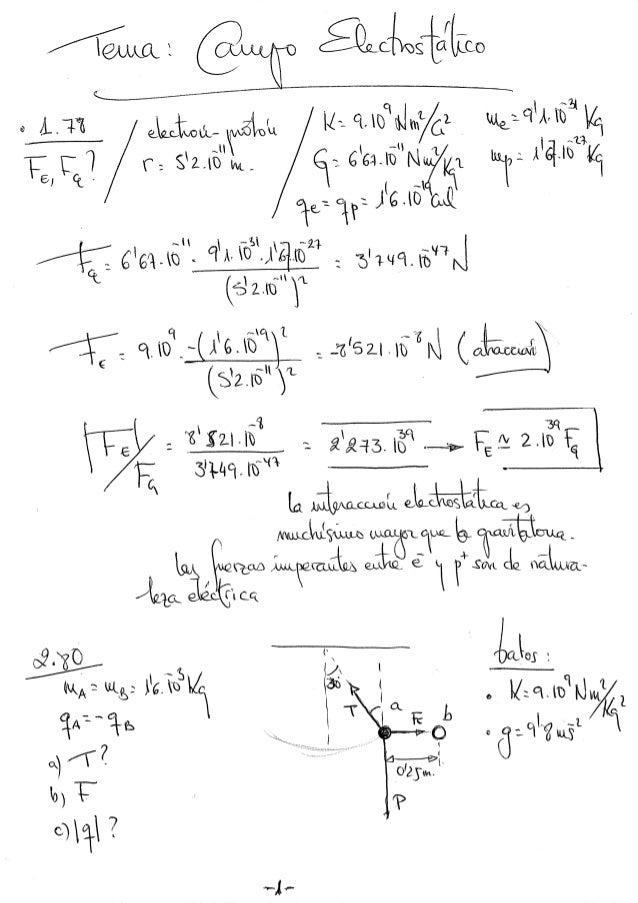 Tema: Campo Electrostático
• 1.78 / electrón-protón / K = 9.10⁹ Nm²/C² me = 9'1.10⁻³¹ Kg
F_E, F_G? / r = 5'2.10⁻¹¹ m. / G = 6'67.10⁻¹¹ Nm²/Kg² mp = 1'67.10⁻²⁷ Kg
qe = qp = 1'6.10⁻¹⁹ cul
F_G = 6'67.10⁻¹¹ · 9'1.10⁻³¹.1'67.10⁻²⁷ / (5'2.10⁻¹¹)² = 3'749.10⁻⁴⁷ N
F_E = 9.10⁹ · -(1'6.10⁻¹⁹)² / (5'2.10⁻¹¹)² = -8'521.10⁻⁸ N (atracción)
|F_E / F_G = 8'521.10⁻⁸ / 3'749.10⁻⁴⁷ = 2'273.10³⁹ → F_E ≃ 2.10³⁹ F_G
la interacción electrostática es
muchísimo mayor que la gravitatoria.
las fuerzas imperantes entre e⁻ y p⁺ son de natura-
leza eléctrica
2.80
m_A = m_B = 1'6.10⁻³ Kg
q_A = -q_B
a) T?
b) F
c) |q|?
30
T
a
Fe
b
0'25m.
P
Datos:
• K = 9.10⁹ Nm²/Kg²
• g = 9'8 ms⁻²
-1-